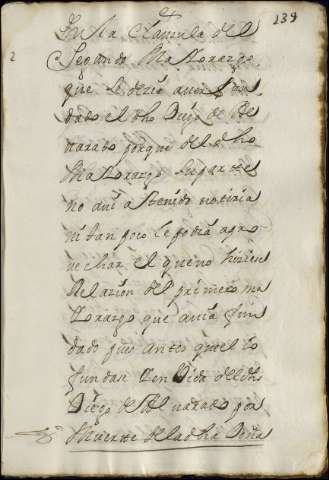 139
En la clausula del
2 Segundo Mayorazgo
que se dezia avia fun
dado el dho Diego de Al
narabo porque del dho
Mayorazgo su parte
no avia tenido notiçia
ni tan poco le podia apro
vechar el que no hiciese
Relaçion del primero ma
yorazgo que avia fun
dado pues antes que lo
fundase en Vida del dho
Diego de Al narabo por
Muerte de la dha Doña